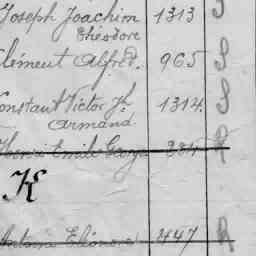 Joseph Joachim 1313 S
Théodore
Clément Alfred. 965 S
Constant Victor Jh 1314. S
Armand
Henri Emile Georges 384 R
K
Antonia Eléonore 447 R